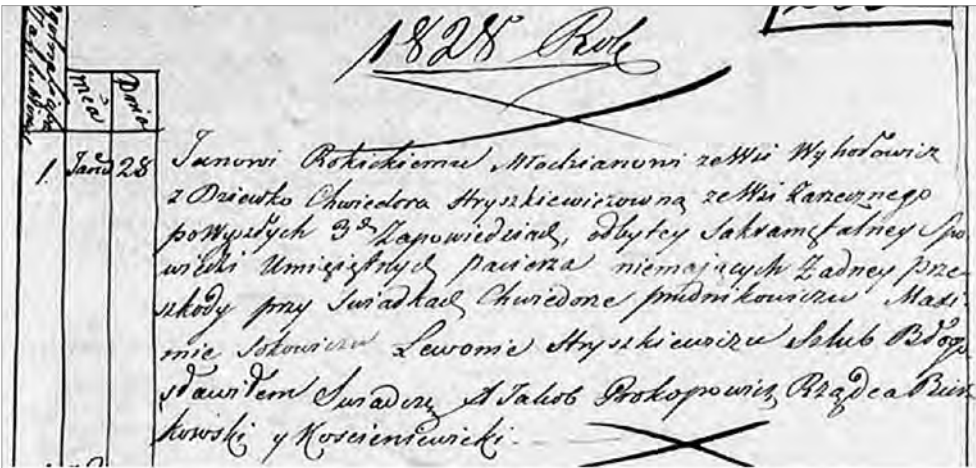 1828 Rok
Mca Dnia
1. Janu 28 Janowi Rokickiemu Młodzianowi ze Wsi Wyhołowicz
z Dziewko Chwiedora Hryszkiewiczowną ze Wsi Zarzecznego
po Wyszłych 3ch Zapowiedziach, odbytey Sakramętalney Spo
wiedzi Umiejętnych pacierza niemających Żadney prze
szkody przy Swiadkach Chwiedorze prudnikowiczu Maxi
mie Lewonie Hryszkiewiczu Szlub Błogo
sławiłem Swiadczę X Jakob Prokopowicz Rządca
kowski y Koscieniewicki.